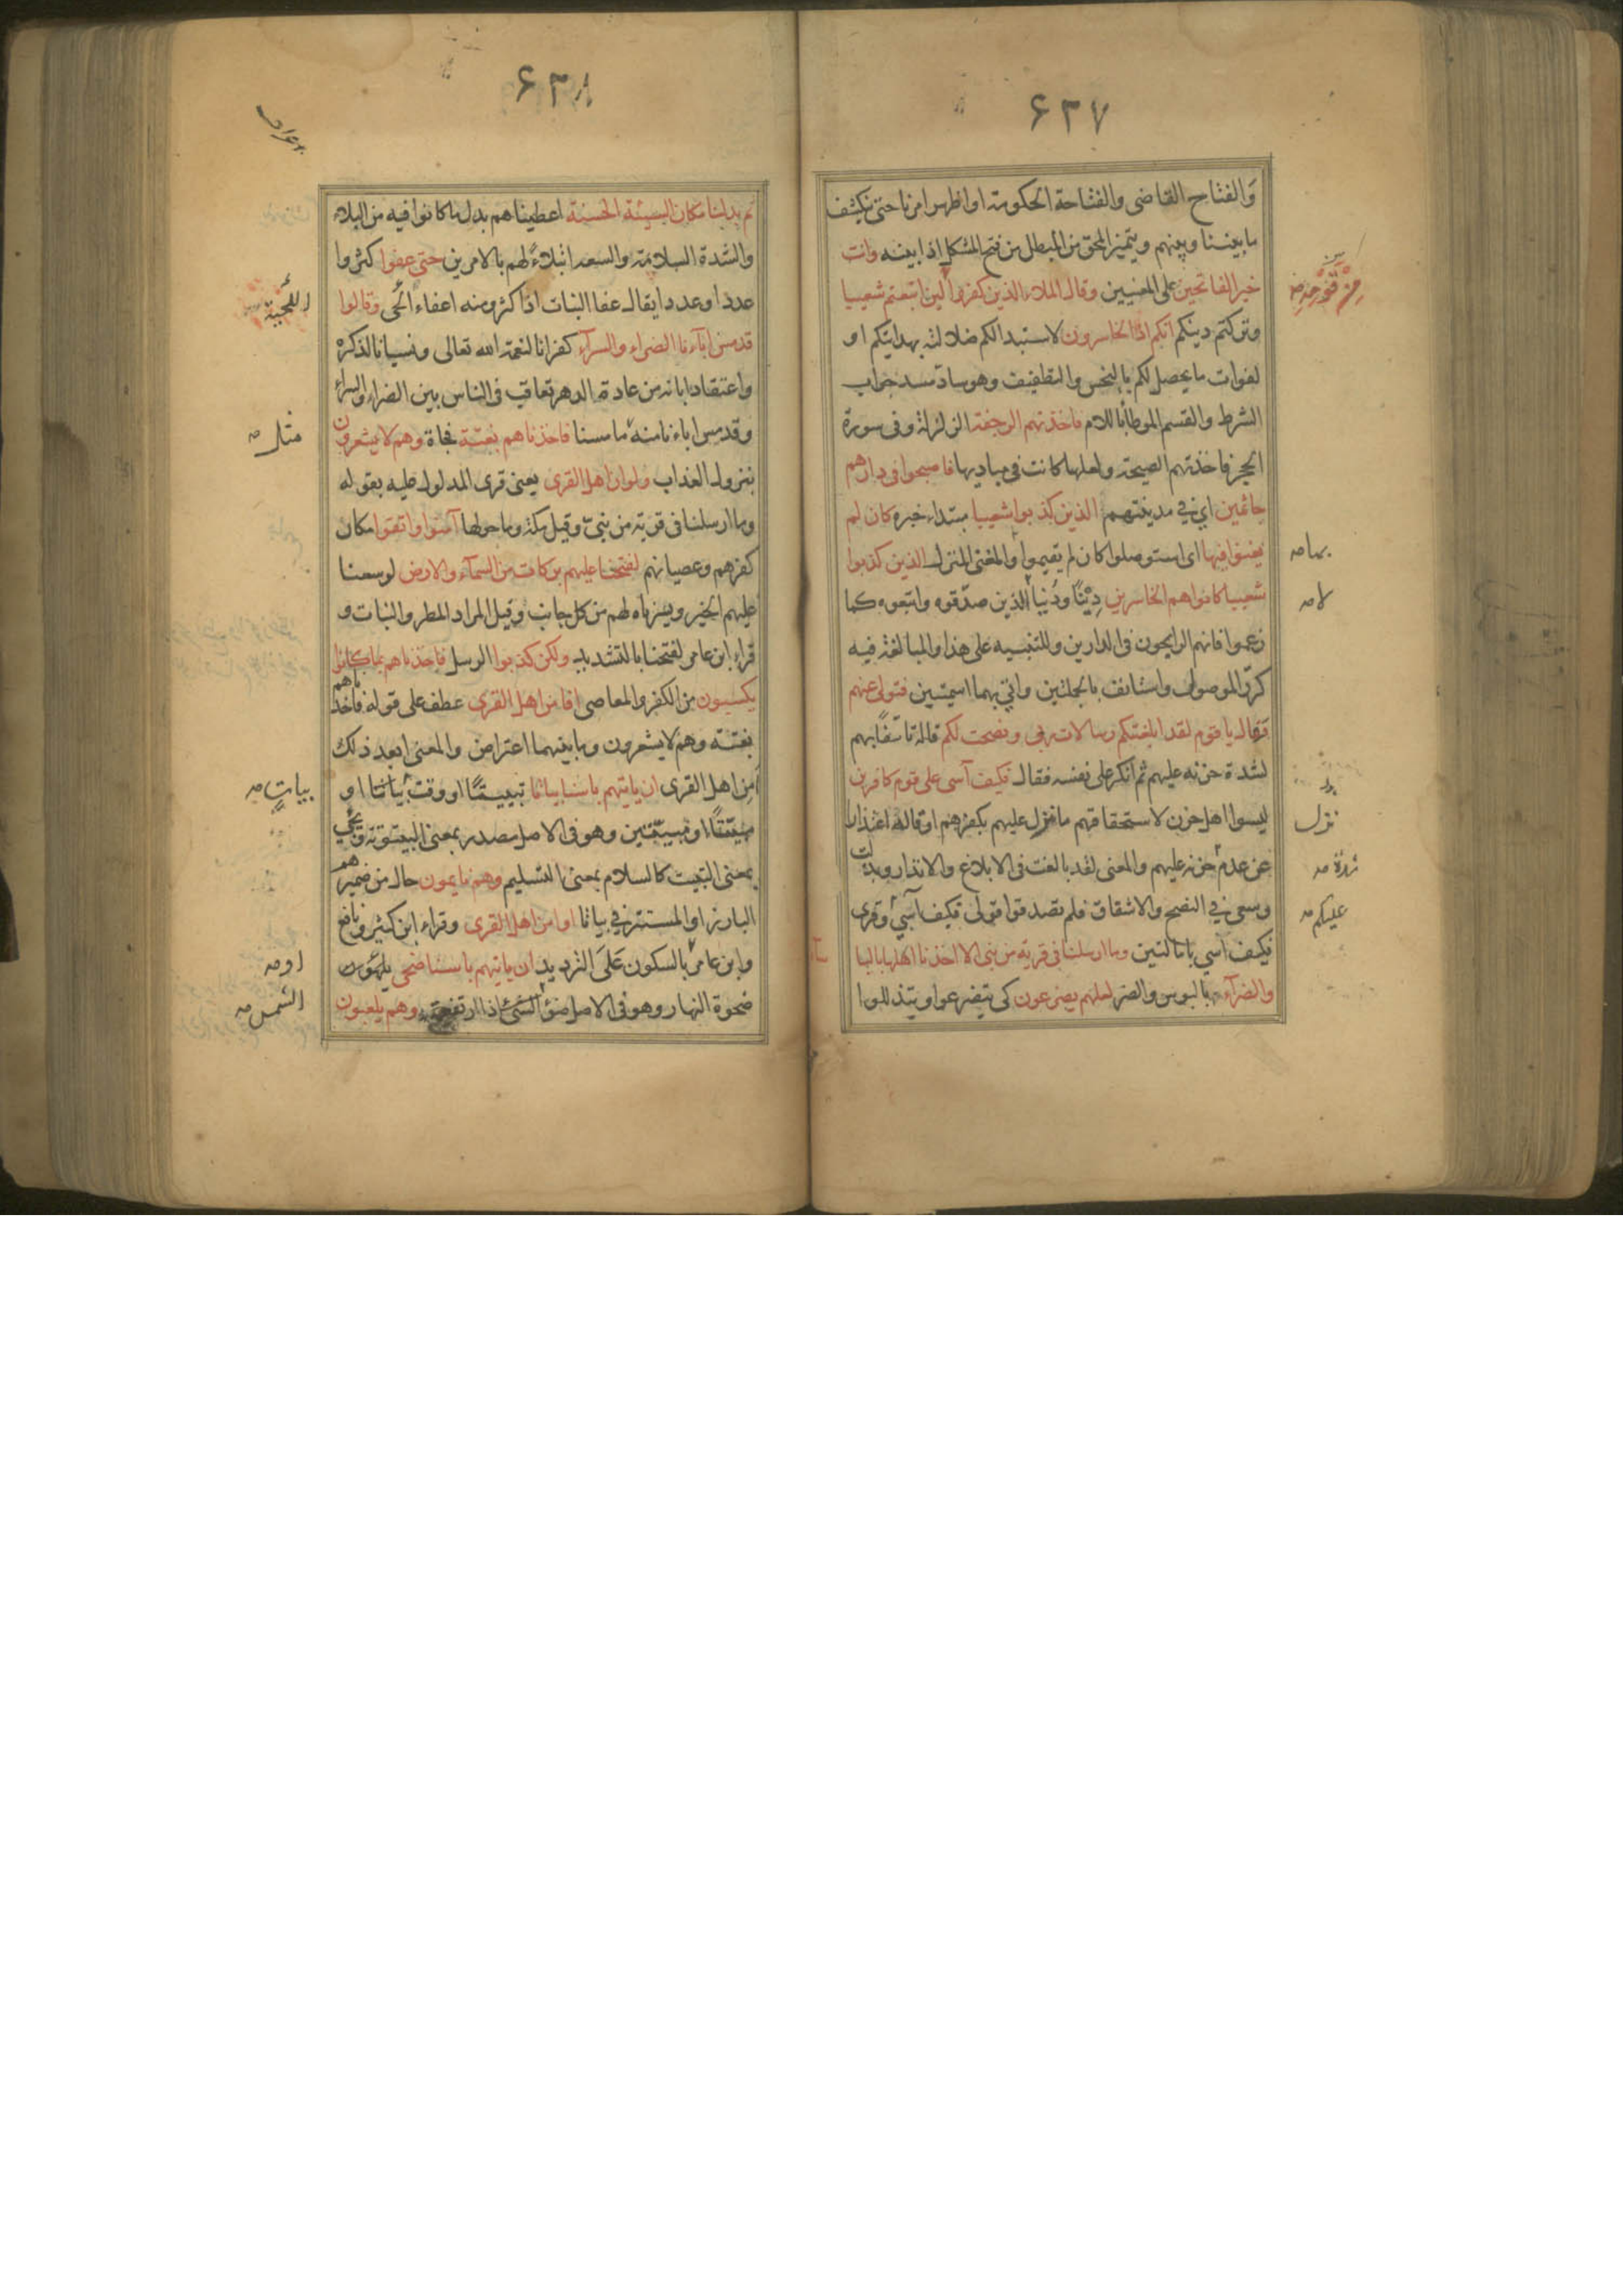 ۶۳۷
والفتاح القاضى والفتاحة الحكومة او اظهر امرنا حتى ينكشف
ما بيننا وبينهم ويتميز المحق من المبطل من فتح المشكل اذا بينه وانت
خير الفاتحين على المعنيين وقال الملاء الذين كفروا لين اتبعتم شعيبا
من قومه صح
وتركتم دينكم انكم اذا الخاسرون لاستبدالكم ضلالته بهدايتكم او
لفوات ما يحصل لكم بالبخس والتطفيف وهو ساد مسد جواب
الشرط والقسم الموطأ باللام فاخذتهم الرجفة الزلزلة وفى سورة
الحجر فاخذتهم الصيحة ولعلها كانت فى مباديها فاصبحوا فى دارهم
جاثمين اي في مدينتهم الذين كذبوا شعيبا مبتداء خبره كان لم
يغنوا فيها اى استوصلوا كان لم يقيموا والمغنى المنزل الذين كذبوا
بها صه
شعيبا كانوا هم الخاسرين دِيْنًا ودُنيا الذين صدّقوه واتبعوه كما
لا صه
زعموا فانهم الرابحون فى الدارين وللتنبيه على هذا والمبالغة فيه
كرّر الموصول واستانف بالجملتين واتي بهما اسميّتين فتولى عنهم
وقال يا قوم لقد ابلغتكم رسالات ربى ونصحت لكم قاله تاسّفًا بهم
لشدة حزنه عليهم ثم انكر على نفسه فقال فكيف آسى على قوم كافرين
ليسوا اهل حزن لاستحقاقهم ما نزل عليهم بكفرهم او قاله اعتذارا
نزل
عن عدم حزنه عليهم والمعنى لقد بالغت فى الابلاغ والانذار وبذلت
شدة صه
وسعى في النصح والاشفاق فلم تصدقوا قولى فكيف آسي وقرى
عليكم صه
فكيف آسي بامالتين وما ارسلنا فى قرية من نبى الا اخذنا اهلها بالبا
والضرآء بالبوس والضر لعلهم يضرعون كى يتضرعوا ويتذللوا
۶۳۸
ثم بدلنا مكان السيئة الحسنة اعطيناهم بدل ما كانوا فيه من البلاء
والشدة السلامة والسعة ابتلاءً لهم بالامرين حتى عفوا كثروا
عددا وعددا يقال عفا النبات اذا كثر ومنه اعفاء اللحى وقالوا
اللحية
قد مس اباءنا الضراء والسرآء كفرانا لنعمة الله تعالى ونسيانا لذكره
واعتقادا بانه من عادة الدهر تعاقب فى الناس بين الضراء والسراء
وقد مس اباءنا منه ما مسنا فاخذناهم بغتة فجاة وهم لا يشعرون
مثل صه
بنزول العذاب ولو ان اهل القرى يعنى قرى المدلول عليه بقوله
وما ارسلنا فى قرية من نبى وقيل مكة وما حولها آمنوا واتقوا مكان
كفرهم وعصيانهم لفتحنا عليهم بركات من السمآء والارض لوسعنا
عليهم الخير ويسرناه لهم من كل جانب وقيل المراد المطر والنبات و
قراء ابن عامر لفتحنا بالتشديد ولكن كذبوا الرسل فاخذناهم بما كانوا
يكسبون من الكفر والمعاصى افامن اهل القرى عطف على قوله فاخذناهم
بغتة وهم لا يشعرون وما بينهما اعتراض والمعنى ابعد ذلك
اَمِن اهل القرى ان ياتيهم باسنا بياتا تبييتًا او وقت بياتا او
بياتٍ صه
مبيّتًا او مبيّتين وهو فى الاصل مصدر بمعنى البيتوتة ويجي
بمعنى التبييت كالسلام بمعنى التسليم وهم نايمون حال من ضميرهم
البارز او المستتر في بياتا اوامن اهل القرى وقراء ابن كثير ونافع
وابن عامر بالسكون على الترديد ان ياتيهم باسنا ضحى
او صه
ضحوة النهار وهو فى الاصل ضوء الشئ اذا ارتفعت وهم يلعبون
الشمس صه